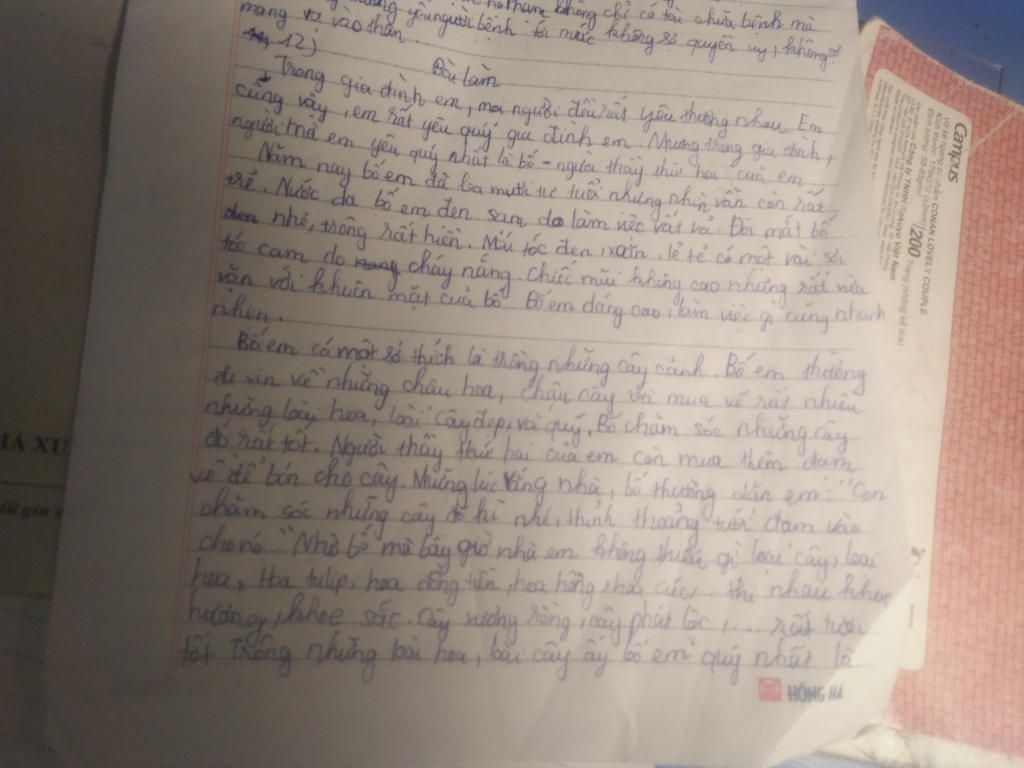 không chỉ có tài chữa bệnh mà
thương yêu người bệnh tới mức không sợ quyền uy, không sợ
mang vạ vào thân.
12)
Bài làm
Trong gia đình em, mọi người đều rất yêu thương nhau. Em
cũng vậy, em rất yêu quý gia đình em. Nhưng trong gia đình,
người mà em yêu quý nhất là bố - người thầy thứ hai của em.
Năm nay bố em đã ba mươi tư tuổi nhưng nhìn vẫn còn rất
trẻ. Nước da bố em đen sạm do làm việc vất vả. Đôi mắt bố
nhỏ, trông rất hiền. Mái tóc đen xoăn, lẻ tẻ có một vài sợi
tóc cam do cháy nắng. Chiếc mũi không cao nhưng rất vừa
vặn với khuôn mặt của bố. Bố em dáng cao, làm việc gì cũng nhanh
nhẹn.
Bố em có một sở thích là trồng những cây cảnh. Bố em thường
đi xin về những chậu hoa, chậu cây và mua về rất nhiều
những loài hoa, loài cây đẹp và quý. Bố chăm sóc những cây
đó rất tốt. Người thầy thứ hai của em còn mua thêm đạm
về để bón cho cây. Những lúc vắng nhà, bố thường dặn em: "Con
chăm sóc những cây đó kĩ nhé, thỉnh thoảng tưới đạm vào
cho nó". Nhờ bố mà bây giờ nhà em không thiếu gì loài cây, loài
hoa. Hoa tulip, hoa đồng tiền, hoa hồng, hoa cúc,... thi nhau khoe
hương, khoe sắc. Cây xương rồng, cây phát lộc,.... rất tươi
tốt. Trông những loài hoa, loài cây ấy bố em quý nhất là
HỒNG HÀ
Campus
Vở kẻ ngang có chấm CONAN LOVELY COUPLE
/200
Công ty TNHH Kokuyo Việt Nam